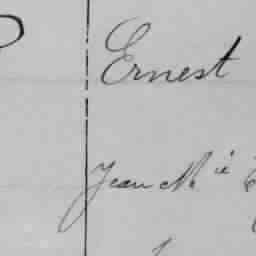 Ernest
Jean M ie